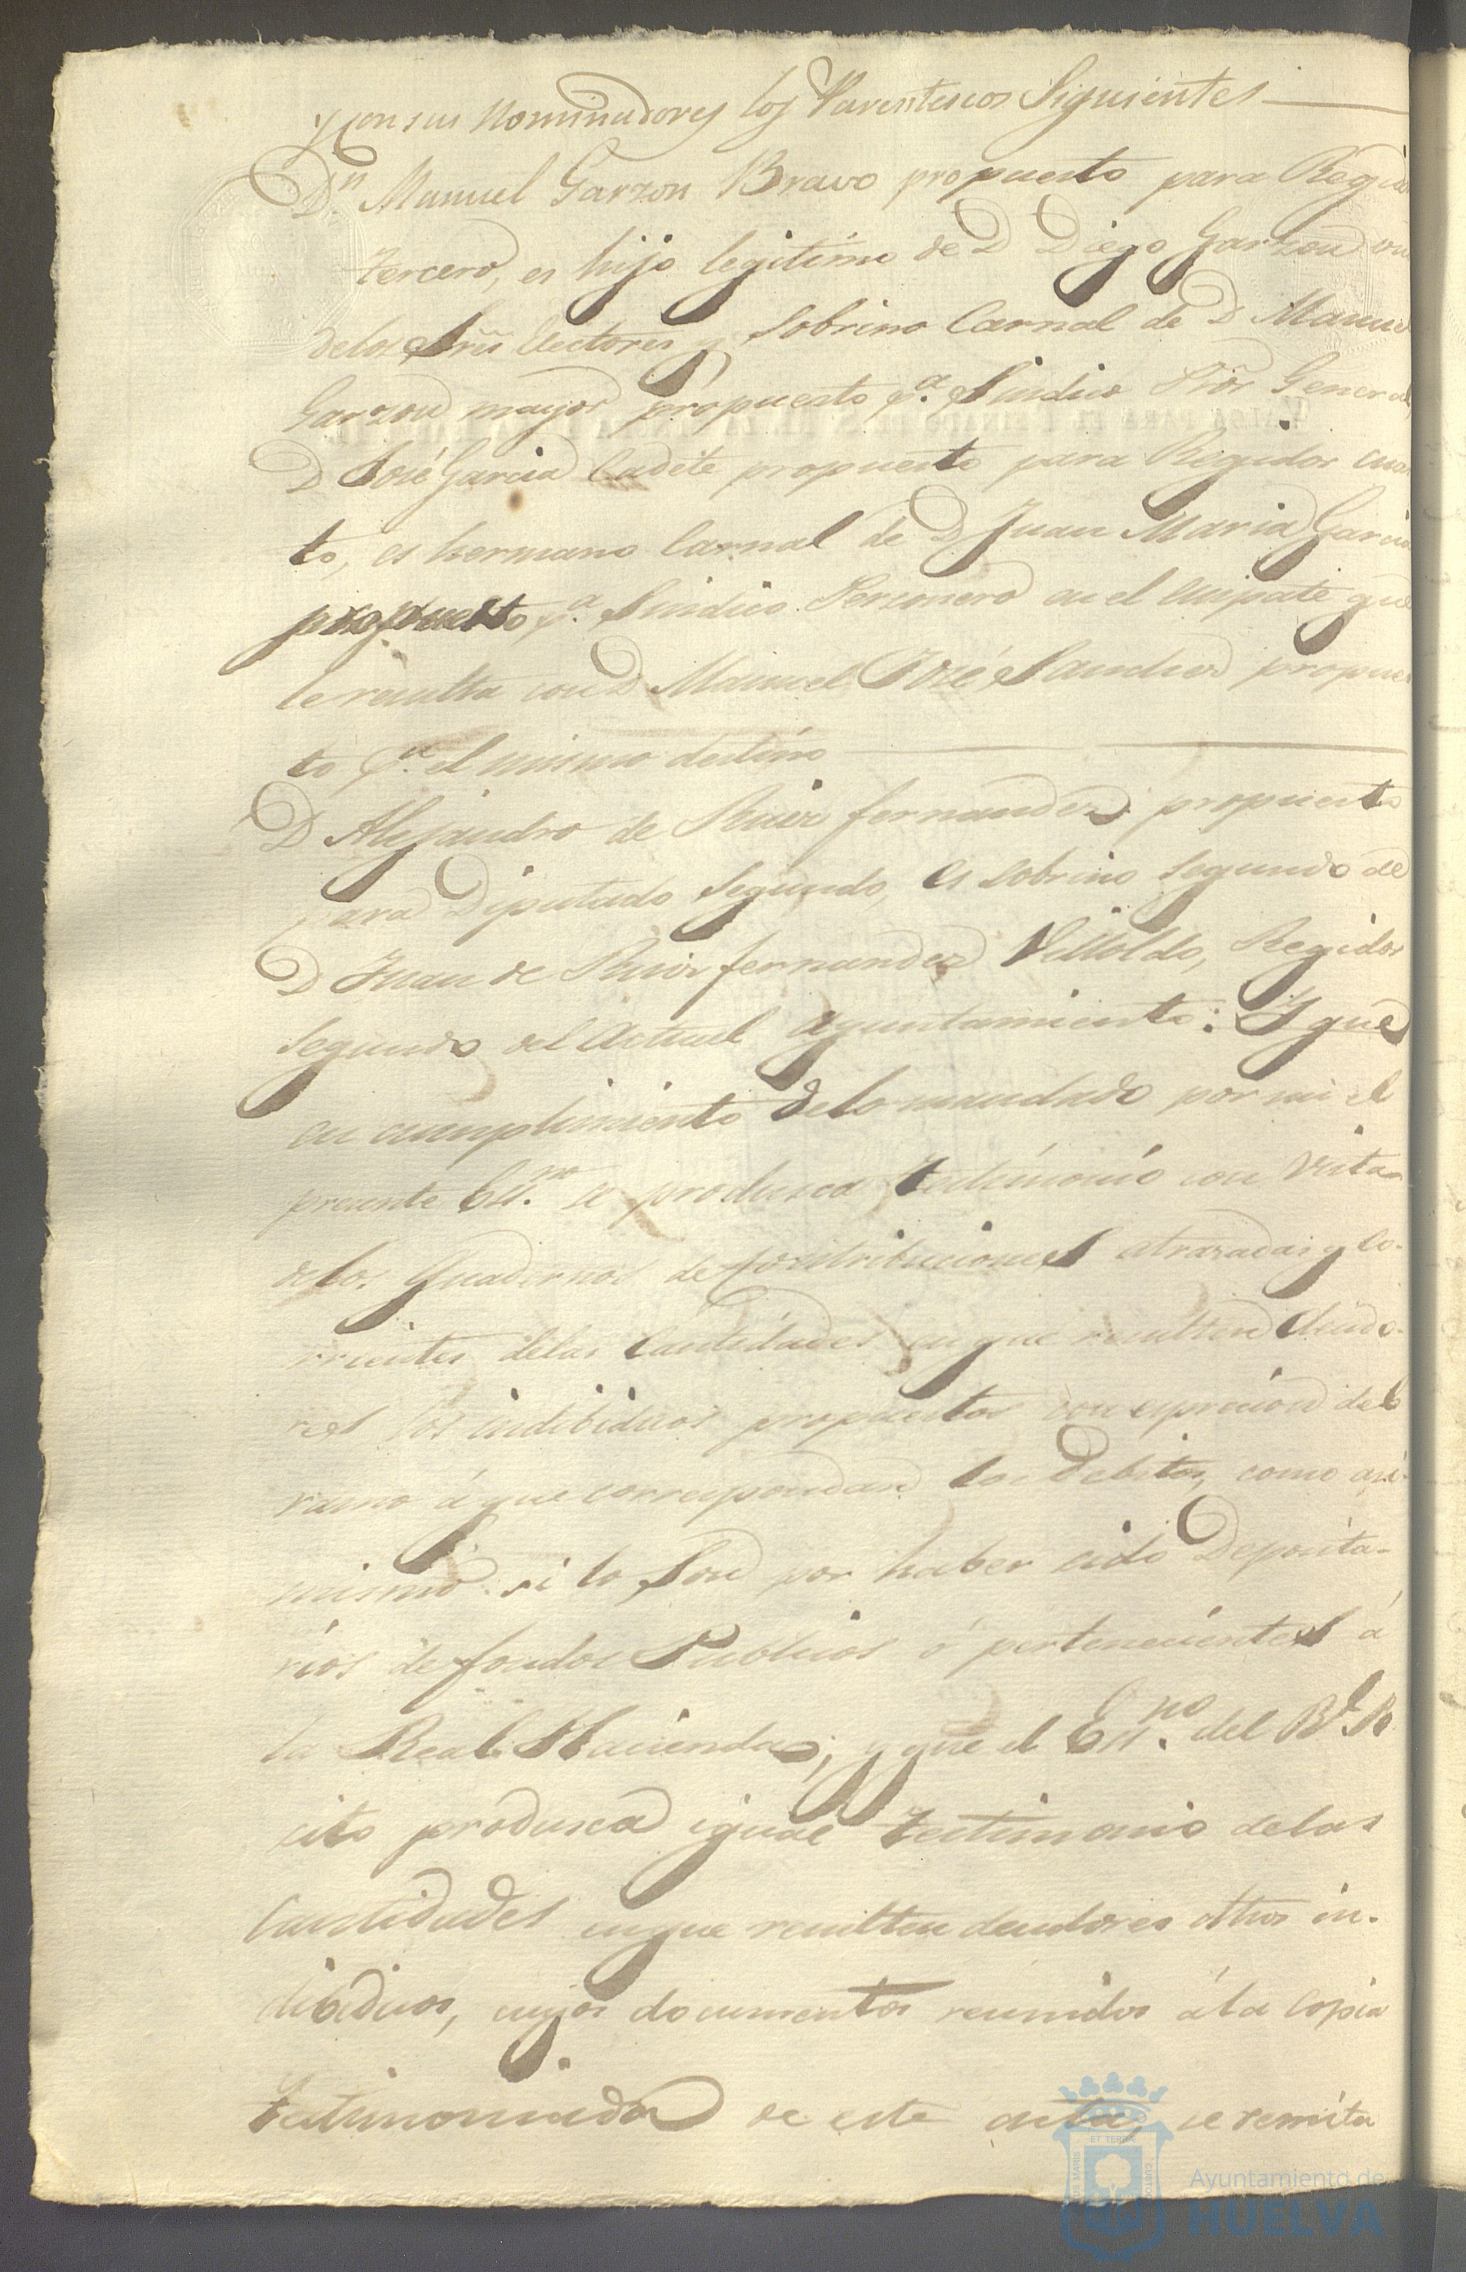 y con sus Nominadores los Parentescos Siguientes
Dn. Manuel Garzon Bravo propuesto para Regidor
tercero, es hijo legitimo de D Diego Garzon uno
delos Sres Electores y Sobrino Carnal de D Manuel
Garzon mayor propuesto pa. Sindico Pror General
D José Garcia Cadete propuesto para Regidor cuar
to, es hermano Carnal de D Juan Maria Garcia
propuesto pa. Sindico Personero en el empate que
le resulta con D Manuel José Sanchez propues
to pa. el mismo destino
D Alejandro de Ruiz fernandez propuesto
para Diputado Segundo, es sobrino segundo de
D Juan de Ruiz fernandez Villoldo, Regidor
Segundo del Actual ayuntamiento: Y que
en cumplimiento delo mandado por mi el
presente Esno. se produsca testimonio con vista
delos Quadernos de Contribuciones atrasadas y Co-
rrientes delas Cantidades en que resulten deudo-
res los indibiduos propuestos con espresion del
ramo á que correspondan los Debitos, como asi
mismo si lo Son por haber sido Deposita-
rios de fondos Publicos ó pertenecientes á
la Real Hacienda; y que el Esno. del Rl Po
sito produsca igual testimonio delas
Cantidades en que resulten deudores dthos in-
dibiduos, cuyos documentos reunidos á la Copia
testimoniada de este acta, se remita
ET TERRAE
Ayuntamiento de
HUELVA